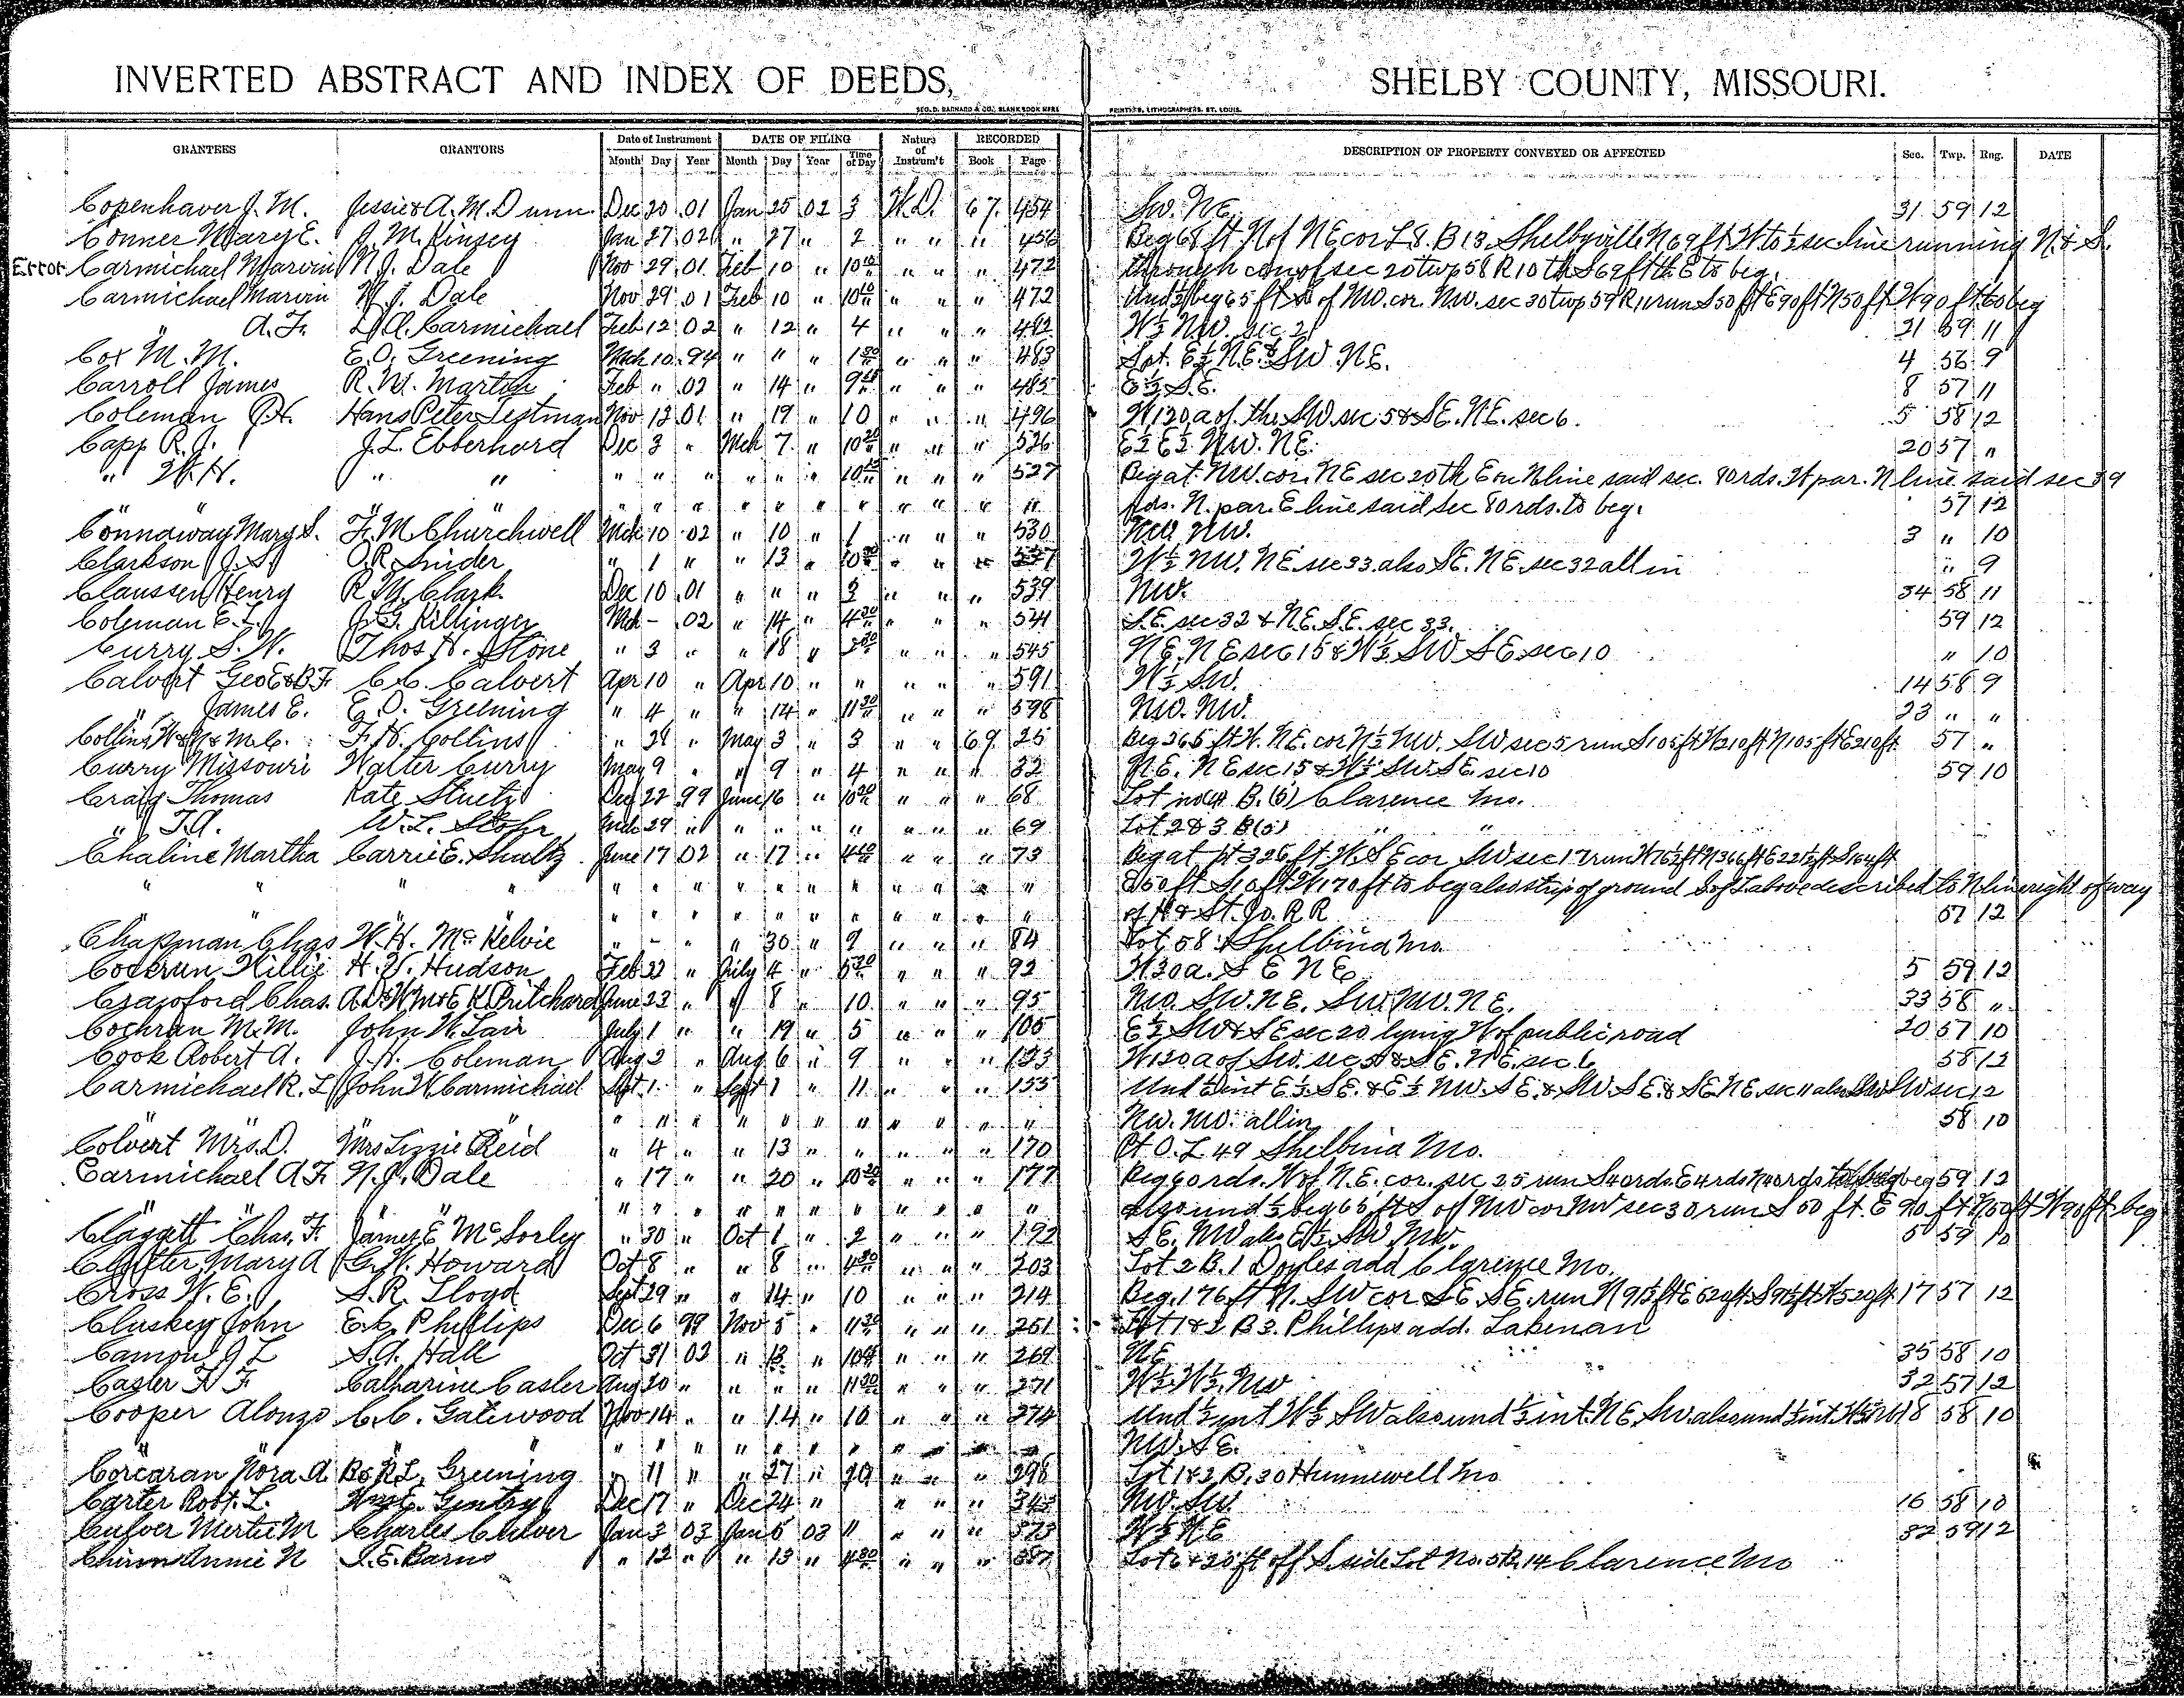 INVERTED ABSTRACT AND INDEX OF DEEDS, SHELBY COUNTY, MISSOURI.
GEO. D. BARNARD & CO., BLANK BOOK MFRS. PRINTERS, LITHOGRAPHERS, ST. LOUIS.
GRANTEES GRANTORS Date of Instrument DATE OF FILING Nature of Instrum't RECORDED DESCRIPTION OF PROPERTY CONVEYED OR AFFECTED Sec. Twp. Rng. DATE
Month Day Year Month Day Year Time of Day Book Page
Copenhaver J. M. Jessie & A. M. Dunn Dec 20 01 Jan 25 02 3 W.D. 67 454 SW. NE. 31 59 12
Conner Mary E. J. M. Kinsey Jan 27 02 " 27 " 2 " " " 456 Beg 68 ft N of NE cor L 8. B 13 Shelbyville N 69 ft W to ½ sec line running N. & S.
Error Carmichael Marvin N. J. Dale Nov 29 01 Feb 10 " 10 10 " " " 472 through cen of sec 20 twp 58 R 10 th S 69 ft th E to beg.
Carmichael Marvin N. J. Dale Nov 29 01 Feb 10 " 10 10 " " " 472 Und ½ beg 65 ft S of NW. cor. NW. sec 30 twp 59 R 11 run S 50 ft E 90 ft N 50 ft W 90 ft to beg
" A. F. D. A. Carmichael Feb 12 02 " 12 " 4 " " " 482 W½ NW. sec 21 21 59 11
Cox M. M. E. O. Greening Mch 10 94 " " " 1 30 " " " 483 Lot. E½ N.E. & SW NE. 4 56 9
Carroll James R. W. Martin Feb " 02 " 14 " 9 " " " 485 E½ S.E. 8 57 11
Coleman J. H. Hans Peter Testman Nov 12 01 " 19 " 10 " " " 496 W 120 a of the SW sec 5 & SE. NE. sec 6. 5 58 12
Capp R. J. J. L. Ebberhard Dec 3 " Mch 7 " 10 30 " " " 526 E½ E½ NW. NE. 20 57 "
" W. H. " " " " " " " " 10 " " " 527 Beg at NW. cor. NE sec 20 th E on N line said sec. 80 rds. W par. N line said sec 39
" " " " " " " " " " " " " " " rds. N. par. E line said sec 80 rds. to beg. 57 12
Connaway Mary S. F. M. Churchwell Mch 10 02 " 10 " 1 " " " 530 NW. NW. 3 " 10
Clarkson J. S. O. R. Snider " 1 " " 13 " 10 " " " 537 W½ NW. NE. sec 33. also SE. NE. sec 32 all in " 9
Claussen Henry R. M. Clark Dec 10 01 " " " 3 " " " 539 NW. 34 58 11
Coleman E. L. J. G. Killinger Mch - 02 " 14 " 4 30 " " " 541 S.E. sec 32 & N.E. S.E. sec 33. 59 12
Curry S. W. Thos H. Stone " 3 " " 18 " 2 30 " " " 545 NE. NE sec 15 & W½ SW SE. sec 10 " 10
Calvert Geo E & B F C. C. Calvert Apr 10 " Apr 10 " " " " " 591 W½ SW. 14 58 9
" James E. E. O. Greening " 4 " " 14 " 11 30 " " " 598 NW. NW. 23 " "
Collins W & M. C. F. H. Collins " 28 " May 3 " 3 " " 69 25 Beg 265 ft W. NE. cor N½ NW. SW sec 5 run S 105 ft W 210 ft N 105 ft E 210 ft. 57 "
Curry Missouri Walter Curry May 9 " " 9 " 4 " " " 32 NE. NE sec 15 & W½ SW. SE. sec 10 59 10
Craig Thomas Kate Stuetz Dec 22 99 June 16 " 10 30 " " " 68 Lot no (4) B. (5) Clarence Mo.
" T. A. W. L. Stohr Mch 29 " " " " " " " " 69 Lot 2 & 3 B (5) " "
Chaline Martha Carrie E. Shultz June 17 02 " 17 " 4 10 " " " 73 Beg at pt 326 ft W. S.E cor SW sec 17 run W 76½ ft N 366 ft E 221½ ft S 164 ft
" " " " " " " " " " " " " " " E 50 ft S 10 ft W 170 ft to beg also strip of ground S of L above described to N line right of way
" " " " " " " " " " " " " " " of H & St. Jo. R R 57 12
Chapman Chas W. H. McKelvie " - " " 30 " 9 " " " 84 Lot 58 Shelbina Mo.
Cockrun Willie H. W. Hudson Feb 22 " July 4 " 5 30 " " " 92 W 30 a. S E N E 5 59 12
Crawford Chas. Pritchard June 23 " " 8 " 10 " " " 95 NW. SW. NE. SW. NW. NE. 33 58 "
Cochran M. M. John W. Lair July 1 " " 19 " 5 " " " 105 E½ SW & SE sec 20 lying W of public road 20 57 10
Cook Robert A. J. H. Coleman Aug 2 " Aug 6 " 9 " " " 123 W 120 a of SW. sec 5 & SE. NE. sec 6 58 12
Carmichael R. L. John W. Carmichael Sept 1 " Sept 1 " 11 " " " 153 Und ½ int E½ SE. & E½ NW. SE. & SW. SE. & SE NE. sec 11 also SW SW sec 12
" " " " " " " " " " " NW. NW. all in 58 10
Colvert Mrs. D. Mrs Lizzie Reid " 4 " " 13 " " " " " 170 Pt O. L 49 Shelbina Mo.
Carmichael A F. N. J. Dale " 17 " " 20 " 10 30 " " " 177 Beg 60 rds. W of N.E. cor. sec 25 run S 40 rds. E 4 rds N 40 rds beg 59 12
" " " " " " " " " " " " " " " also und ½ beg 65 ft S of NW cor NW sec 30 run S 50 ft. E 90 ft N 50 ft W 90 ft beg
Claggett Chas. F. James E McSorley " 30 " Oct 1 " 2 " " " 192 SE. NW also E½ SW NW. 5 59 10
Clutter Mary A G. W. Howard Oct 8 " " 8 " 4 30 " " " 203 Lot 2 B. 1 Doyles add Clarence Mo.
Cross W. E. S. R. Lloyd Sept 29 " " 14 " 10 " " " 214 Beg. 176 ft N. SW cor SE. SE. run N 91½ ft E 520 ft S 91½ ft W 520 ft 17 57 12
Cluskey John E. C. Phillips Dec 6 99 Nov 5 " 11 30 " " " 251 Lot 1 & 2 B 3. Phillips add. Lakenan
Camon J L S. A. Hall Oct 31 02 " 13 " 10 " " " 269 NE 35 58 10
Casler F. F. Catharine Casler Aug 20 " " " " 11 30 " " " 271 W½ W½ NW 32 57 12
Cooper Alonzo C. C. Gatewood Nov 14 " " 14 " 10 " " " 274 Und ½ int W½ SW also und ½ int. NE SW. also und ½ int. 18 58 10
" " " " " " " " " " " NW. SE.
Corcaran Nora A B & R L. Greening " 11 " " 27 " " " " 298 Lot 1 & 2 B. 30 Hunnewell Mo
Carter Robt. L. Gentry Dec 17 " Dec 24 " " " " 343 NW. SW. 16 58 10
Culver Mertie M Charles Culver Jan 3 03 Jan 5 03 11 " " " 373 W½ NE 32 59 12
Annie N I. E. Barns " 12 " " 13 " 4 30 " " " 387 Lot 6 & 25 ft off S side Lot No. 5 B. 14 Clarence Mo